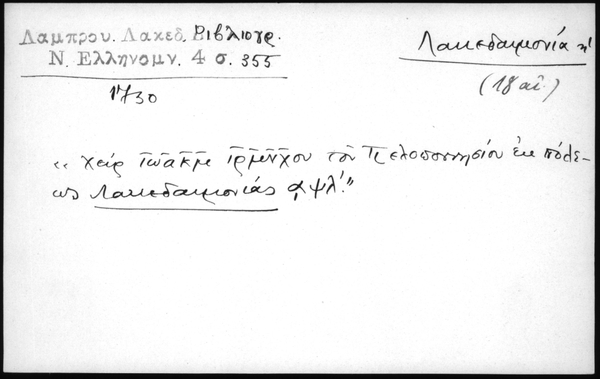 Λαμπρου. Λακεδ. Βιβλιογρ.
Ν. Ελληνομν. 4 σ. 355
1730
Λακεδαιμονία
(18 αἰ.)
„ χεὶρ ἰωακμ ἱρμνχου τοῦ Πελοποννησίου ἐκ πόλε-
ως Λακεδαιμονίας ͵αψλ´."